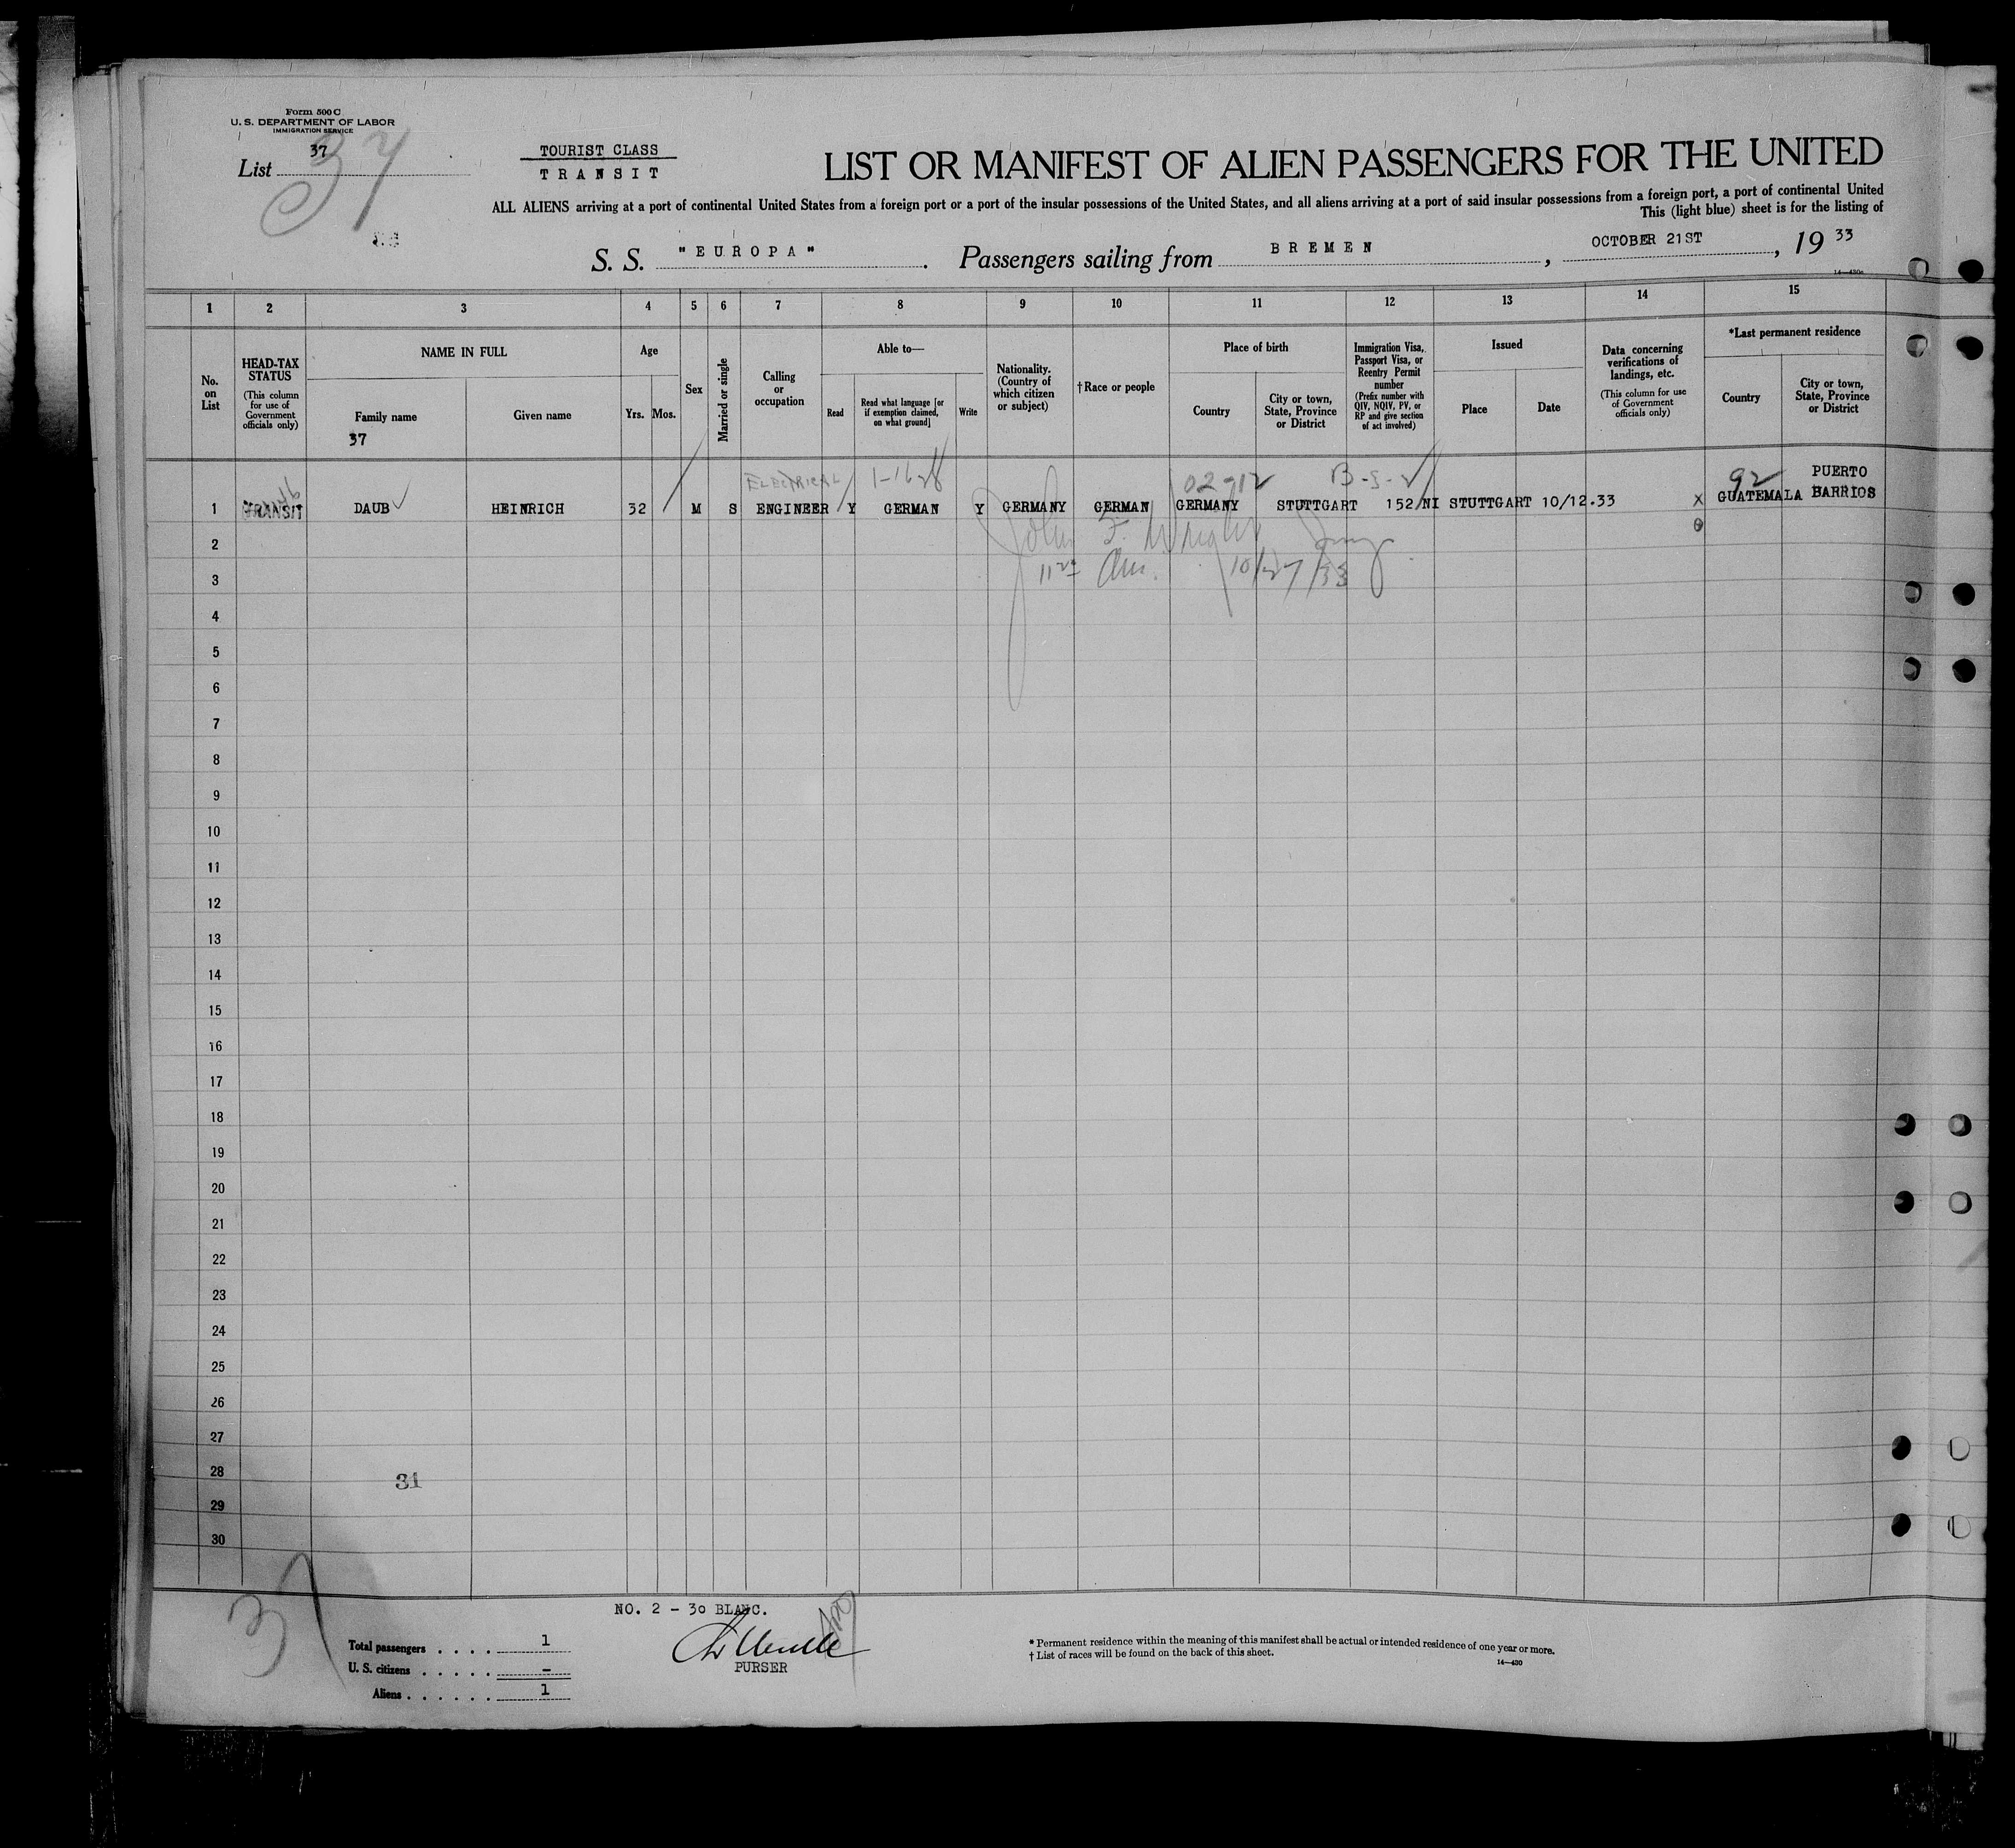 Form 500 C
U. S. DEPARTMENT OF LABOR
IMMIGRATION SERVICE
List 37
37
TOURIST CLASS
TRANSIT
LIST OR MANIFEST OF ALIEN PASSENGERS FOR THE UNITED
ALL ALIENS arriving at a port of continental United States from a foreign port or a port of the insular possessions of the United States, and all aliens arriving at a port of said insular possessions from a foreign port, a port of continental United
This (light blue) sheet is for the listing of
S. S. "EUROPA". Passengers sailing from BREMEN, OCTOBER 21ST, 19 33
14—430a
1 2 3 4 5 6 7 8 9 10 11 12 13 14 15
No. on List
HEAD-TAX STATUS
(This column for use of Government officials only)
NAME IN FULL
Family name
37
Given name
Age
Yrs. Mos.
Sex
Married or single
Calling or occupation
Able to—
Read
Read what language [or if exemption claimed, on what ground]
Write
Nationality. (Country of which citizen or subject)
†Race or people
Place of birth
Country
City or town, State, Province or District
Immigration Visa, Passport Visa, or Reentry Permit number
(Prefix number with QIV, NQIV, PV, or RP and give section of act involved)
Issued
Place
Date
Data concerning verifications of landings, etc.
(This column for use of Government officials only)
*Last permanent residence
Country
City or town, State, Province or District
ELECTRICAL 92 PUERTO
1 TRANSIT DAUB HEINRICH 32 M S ENGINEER Y GERMAN Y GERMANY GERMAN GERMANY STUTTGART 152/NI STUTTGART 10/12.33 X GUATEMALA BARRIOS
2
John F. Wright
3
10/27/33
4
5
6
7
8
9
10
11
12
13
14
15
16
17
18
19
20
21
22
23
24
25
26
27
28
31
29
30
37
NO. 2 - 30 BLANC.
PURSER
Total passengers . . . . 1
U. S. citizens . . . . . –
Aliens . . . . . . 1
* Permanent residence within the meaning of this manifest shall be actual or intended residence of one year or more.
† List of races will be found on the back of this sheet.
14—430